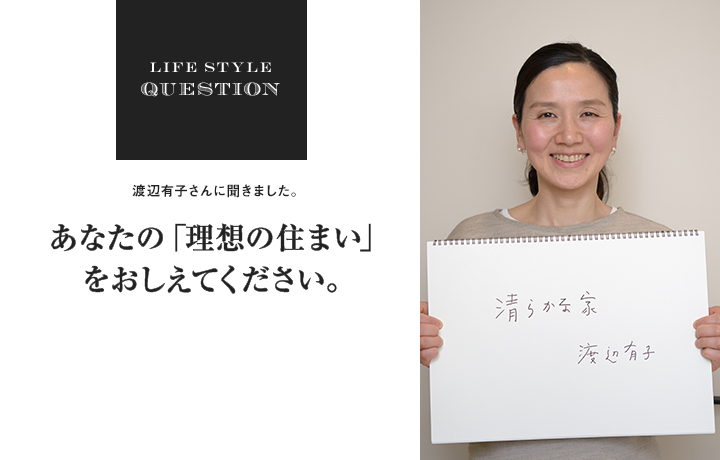 LIFE STYLE
QUESTION
渡辺有子さんに聞きました。
あなたの「理想の住まい」
をおしえてください。
清らかな家
渡辺有子